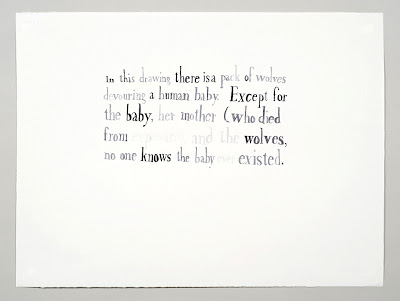 In this drawing there is a pack of wolves
devouring a human baby. Except for
the baby, her mother (who died
from exposure), and the wolves,
no one knows the baby ever existed.